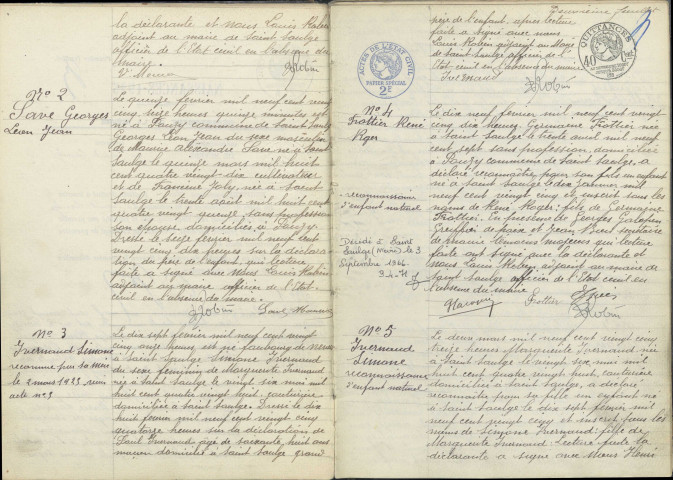 la déclarante et nous Louis Robin
adjoint au maire de Saint Saulge
officier de l'Etat civil en l'absence du
maire.
Robin
No 2
Save Georges
Léon Jean
Le quinze février mil neuf cent vingt
cinq seize heures quinze minutes est
né à Sauzy commune de Saint Saulge
Georges Léon Jean du sexe masculin
de Maurice Alexandre Save né à Saint
Saulge le quinze mars mil huit
cent quatre vingt dix cultivateur
et de Francine Joly née à Saint
Saulge le trente août mil huit cent
quatre vingt quinze sans profession
son épouse domiciliés à Sauzy.
Dressé le seize février mil neuf cent
vingt cinq dix heures sur la déclaration
du père de l'enfant, qui lecture
faite a signé avec Nous Louis Robin
adjoint au maire officier de l'Etat
civil en l'absence du maire.
Robin Save Maurice
No 3
Ivernaud Simone
reconnue par sa mère
le 2 mars 1925
acte no 5
Le dix sept février mil neuf cent vingt
cinq onze heures est née faubourg de
à Saint Saulge Simone Ivernaud
du sexe féminin de Marguerite Ivernaud
née à Saint Saulge le vingt six mai mil
huit cent quatre vingt huit, couturière
domiciliée à Saint Saulge. Dressé le dix
huit février mil neuf cent vingt cinq
quatorze heures sur la déclaration de
Ivernaud âgé de soixante huit ans
maçon domicilié à Saint Saulge grand
Deuxième feuillet
père de l'enfant, après lecture
faite a signé avec nous
Louis Robin adjoint au Maire
de Saint Saulge officier de l'
Etat civil en l'absence du maire
Ivernaud
Robin
ACTES DE L'ETAT CIVIL
PAPIER SPECIAL
2F
QUITTANCES
40
No 4
Trottier René
Roger
reconnaissance
d'enfant naturel
Décédé à Saint
Saulge (Nièvre) le 3
Septembre 1966
Le dix neuf février mil neuf cent vingt
cinq dix heures Germaine Trottier née
à Saint Saulge le trente août mil neuf
cent sept sans profession, domiciliée
à Sauzy commune de Saint Saulge, a
déclaré reconnaître pour son fils un enfant
né à Saint Saulge le dix janvier mil
neuf cent vingt cinq et inscrit sous les
noms de René Roger, fils de Germaine
Trottier. En présence de Georges
Greffier de paix et Jean secrétaire
de mairie témoins majeurs qui lecture
faite ont signé avec la déclarante et
nous Louis Robin adjoint au maire de
Saint Saulge officier de l'Etat civil en
l'absence du maire
Trottier
Robin
No 5
Ivernaud
Simone
reconnaissance
d'enfant naturel
Le deux mars mil neuf cent vingt cinq
seize heures Marguerite Ivernaud née
à Saint Saulge le vingt six mai mil
huit cent quatre vingt huit, couturière
domiciliée à Saint Saulge, a déclaré
reconnaître pour sa fille un enfant né
à Saint Saulge le dix sept février mil
neuf cent vingt cinq et inscrit sous les
noms de Simone Ivernaud, fille de
Marguerite Ivernaud. Lecture faite la
déclarante a signé avec Nous Henri